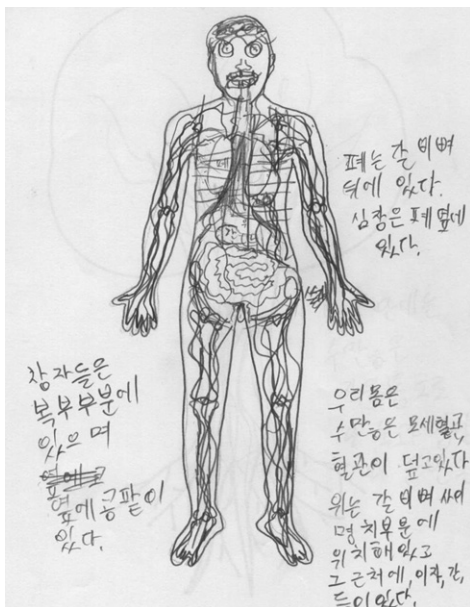 폐는 갈비뼈
뒤에 있다.
심장은 폐 옆에
있다.
창자들은
복부부분에
있으며
옆에
표에 콩팥이
있다.
우리몸은
수만은 모세혈관,
혈관이 덮고있다
위는 갈비뼈 사이
명치부분에
위치해있고
그 근처에, 이자, 간,
등이 있다.